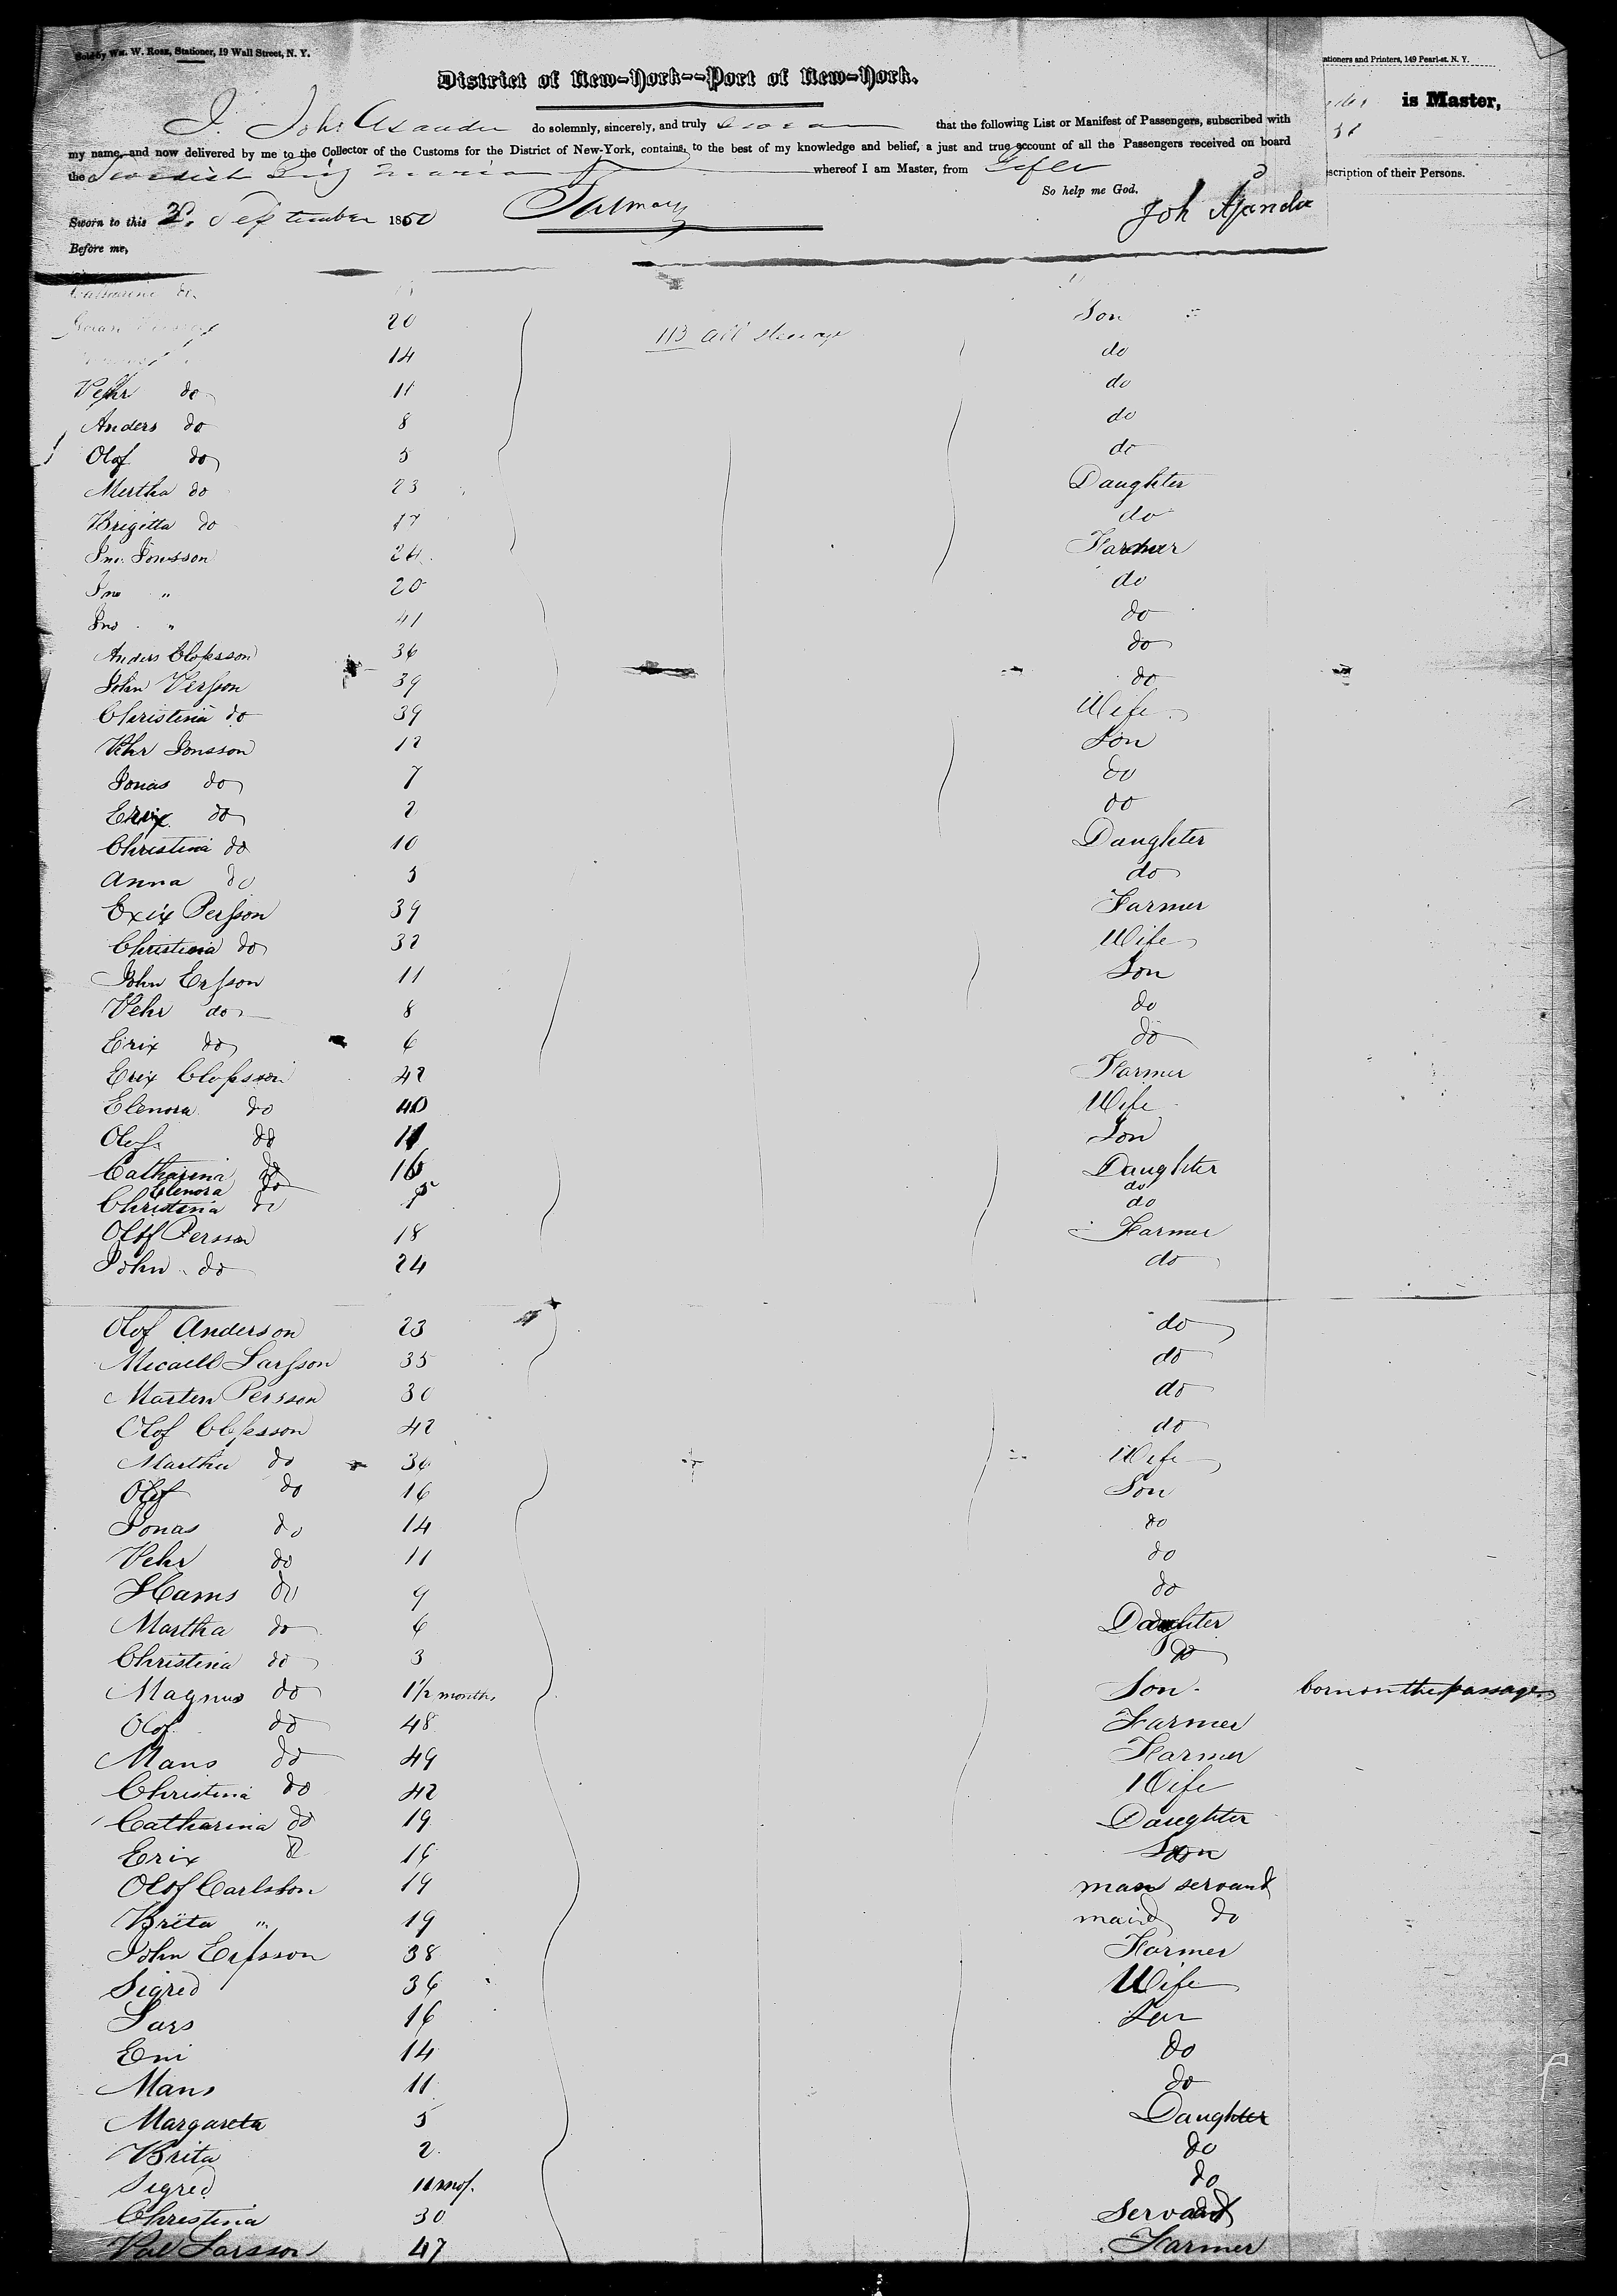 Sold by Wm. W. Rose, Stationer, 19 Wall Street, N. Y.
ationers and Printers, 149 Pearl-st. N. Y.
District of New-York--Port of New-York.
is Master,
I. Joh. Asander do solemnly, sincerely, and truly swear that the following List or Manifest of Passengers, subscribed with
my name, and now delivered by me to the Collector of the Customs for the District of New-York, contains, to the best of my knowledge and belief, a just and true account of all the Passengers received on board
the Swedish Brig Maria whereof I am Master, from Gefle
scription of their Persons.
So help me God.
Sworn to this 3. September 1850
Joh Asander
Before me,
Catharine do
20 Son
113 all steerage
14 do
Pehr do 11 do
Anders do 8 do
Olof do 5 do
Mertha do 23 Daughter
Brigitta do 17 do
Jno. Jonsson 24 Farmer
Jno " 20 do
Jno " 41 do
Anders Olofsson 36 do
John Persson 39 do
Christina do 39 Wife
Pehr Jonsson 12 Son
Jonas do 7 do
Erix do 2 do
Christina do 10 Daughter
Anna do 3 do
Erix Persson 39 Farmer
Christina do 32 Wife
John Ersson 11 Son
Pehr do 8 do
Erix do 6 do
Erix Olofsson 42 Farmer
Elenora do 40 Wife
Olof do 11 Son
Catharina do 16 Daughter
Elenora do do
Christina do 5 do
Olof Persson 18 Farmer
John do 24 do
Olof Anderson 23 do
Micaell Larsson 35 do
Marten Persson 30 do
Olof Olofsson 42 do
Martha do 36 Wife
Olof do 16 Son
Jonas do 14 do
Pehr do 11 do
Hams do 9 do
Martha do 6 Daughter
Christina do 3 do
Magnus do 1 1/2 months Son born on the passage
Olof do 48 Farmer
Mans do 49 Farmer
Christina do 42 Wife
Catharina do 19 Daughter
Erix do 16 Son
Olof Carlsson 19 man servant
Brita " 19 maid do
John Ersson 38 Farmer
Sigred 36 Wife
Lars 16 Son
Eni 14 do
Mans 11 do
Margareta 5 Daughter
Brita 2 do
Sigred 11 mos. do
Christina 30 Servant
Pal Larsson 47 Farmer